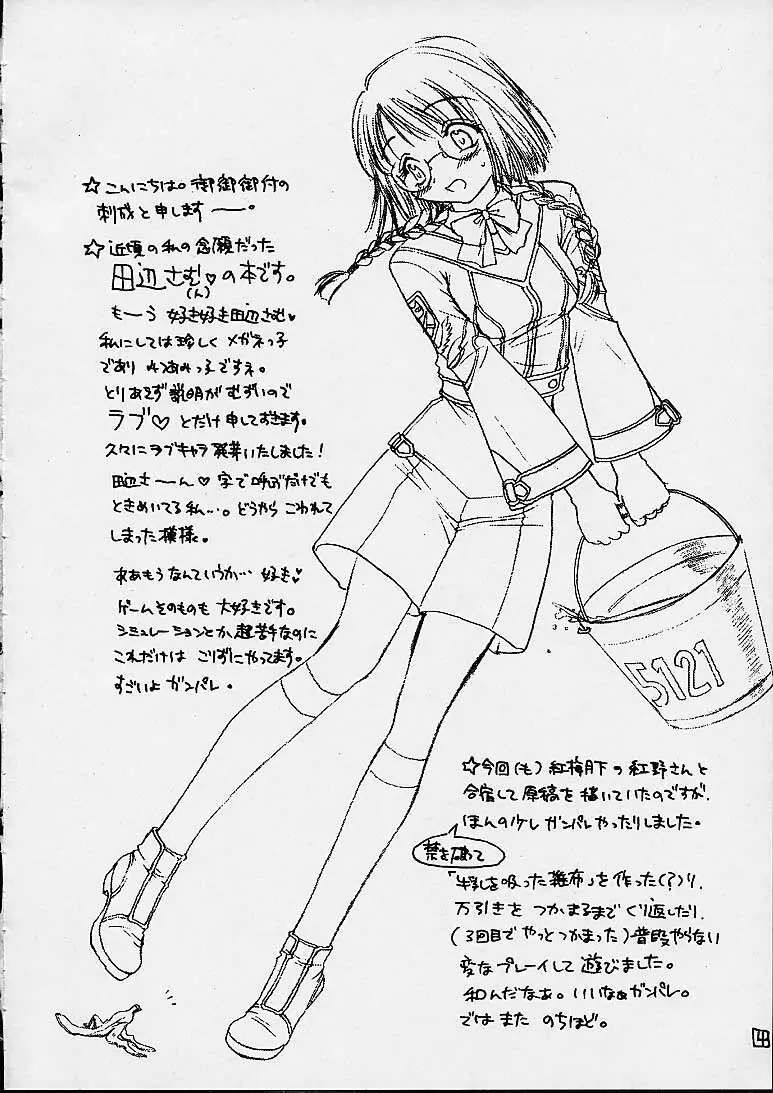 ☆こんにちは。御御御付の
刺成と申しますーー。
☆近頃の私の念願だった
田辺さむ♡の本です。
(ん)
もーう 好き好き田辺さむ♥
私にしては珍しくメガネっ子
であり みつあみっ子ですネ。
とりあえず説明がむずいので
ラブ♡ とだけ申しておきます。
久々にラブキャラ発芽いたしました!
田辺さーーん♡字で呼ぶだけでも
ときめいてる私…。どうやら こわれて
しまった模様。
ああもうなんていうか… 好き♥
ゲームそのものも 大好きです。
シミュレーションとか超苦手なのに
これだけは こりずにやってます。
すごいよ ガンパレ。
5121
☆今回(も)紅梅月下の紅野さんと
合宿して原稿を描いていたのですが、
ほんの少し ガンパレやったりしました。
禁を破って
「牛乳を吸った雑布」を作った(?)り、
万引きを つかまるまで くり返したり、
(3回目で やっとつかまった)普段やらない
変なプレイして 遊びました。
和んだなぁ。いいなぁガンパレ。
では また のちほど。
4